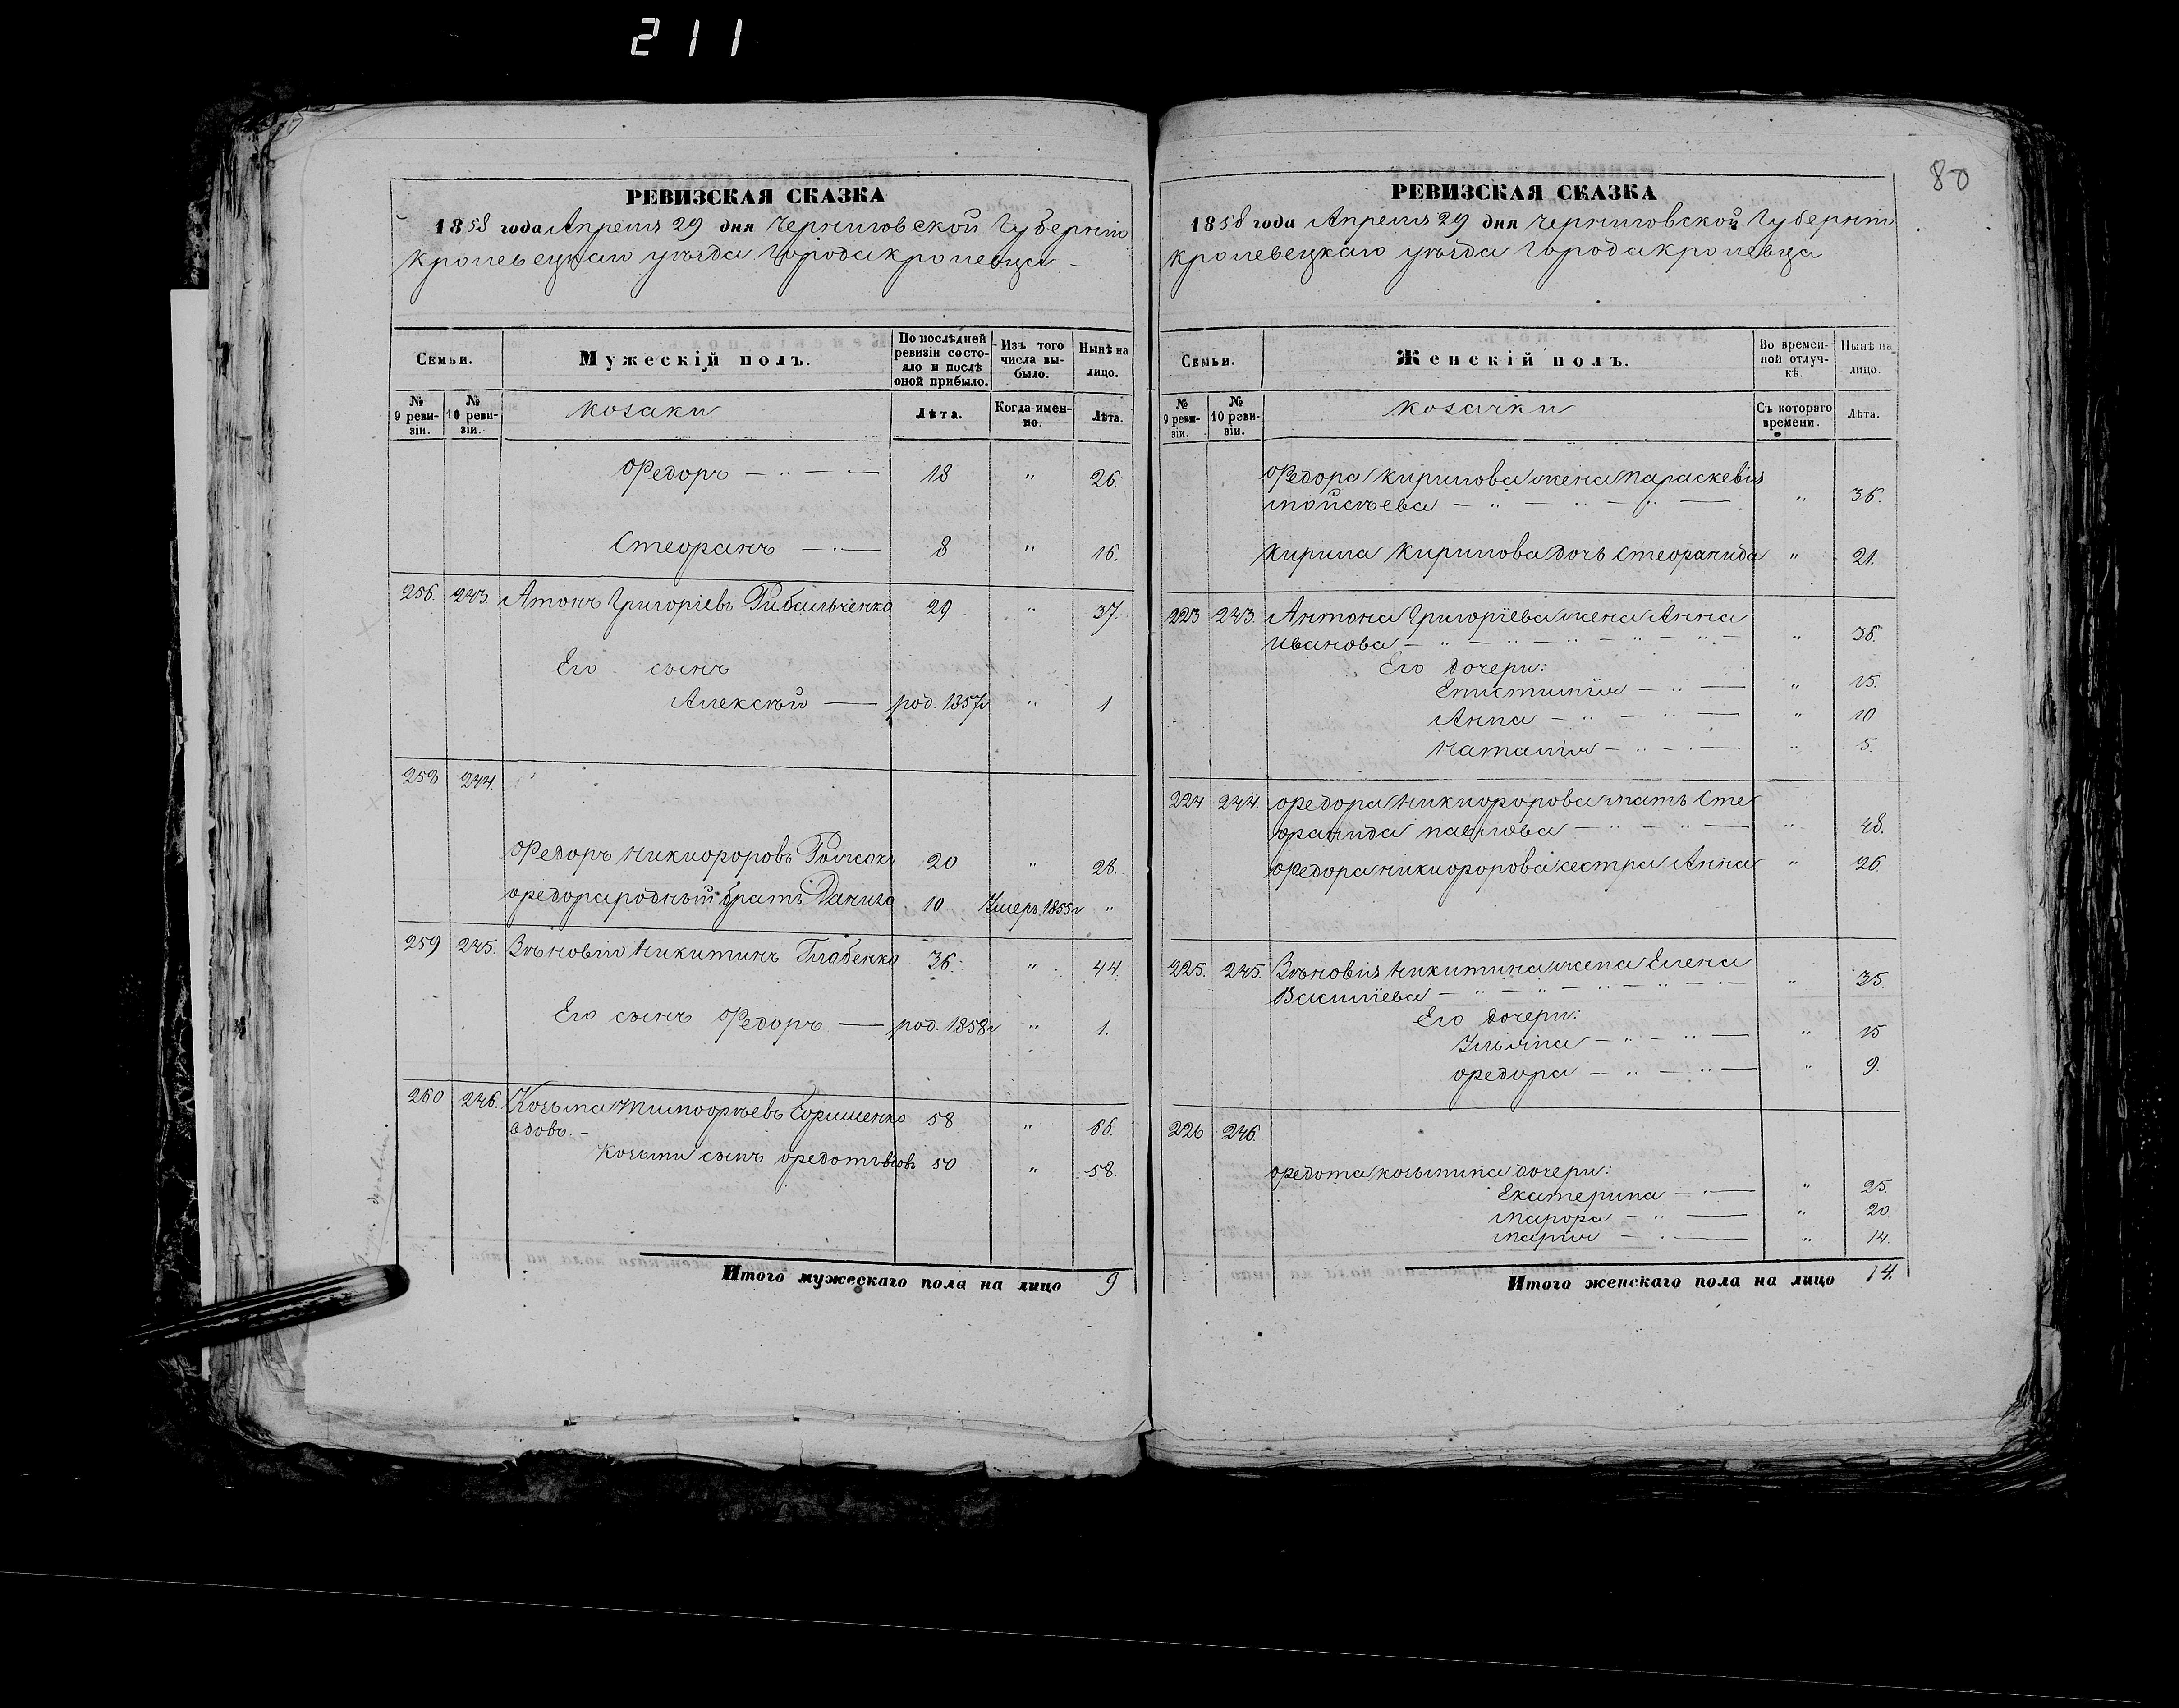 211
80
РЕВИЗСКАЯ СКАЗКА
1858 года Апреля 29 дня Черниговской Губерніи
Кролевецкаго уѣзда Города Кролевца
Семьи.
Мужескій полъ.
По послѣдней ревизіи состояло и послѣ оной прибыло.
Изъ того числа выбыло.
Нынѣ на лицо.
№ 9 ревизіи.
№ 10 ревизіи.
козаки
Лѣта.
Когда именно.
Лѣта.
Федоръ — " — 18 " 26.
Стефанъ — " — 8 " 16.
256. 243. Антонъ Григоріевъ Рибальченко 29 " 37.
Его сынъ
Алексѣй — род. 1857г " 1
258 244.
Федоръ Никифоровъ 20 " 28.
Федора родный братъ Данило 10 Умеръ 1855г "
259 245. Зѣновій Никитинъ 36. " 44.
Его сынъ Федоръ — род. 1858г " 1.
260 246. Козьма Тимофѣевъ 58 " 66.
вдовъ. -
Козьми сынъ Федотъ вдовъ 50 " 58.
Итого мужескаго пола на лицо 9
РЕВИЗСКАЯ СКАЗКА
1858 года Апреля 29 дня Черниговской Губерніи
Кролевецкаго уѣзда Города Кролевца
Семьи.
Женскій полъ.
Во временной отлучкѣ.
Нынѣ на лицо.
№ 9 ревизіи.
№ 10 ревизіи.
козачки
Съ котораго времени.
Лѣта.
Федора Кирилова жена Параскевія
Мойсѣева — " — " — " — " 36.
Кирила Кирилова дочь Стефанида " 21.
223 243. Антона Григоріева жена Анна
Иванова — " — " — " — " — " 36.
Его дочери:
Епистимія — " — " 15.
Анна — " — " — " 10
Наталія — " — " 5.
224 244. Федора Никифорова мать Сте
фанида Павлова — " — " — " 48.
Федора Никифорова сестра Анна " 26.
225. 245. Зѣновія Никитина жена Елена
Василіева — " — " — " — " — " 35.
Его дочери:
Ульяна — " — " — " 15
Федора — " — " — " 9.
226 246.
Федота Козьмина дочери:
Екатерина — " — " 25.
Марфа — " — " 20.
Марія — " — " 14.
Итого женскаго пола на лицо 14.